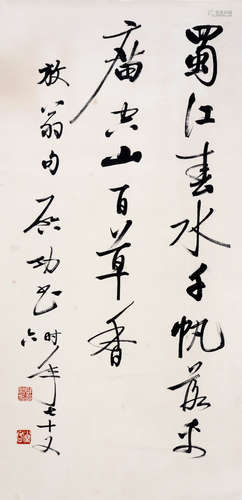 蜀江春水千帆落禹
廟空山百草香
放翁句 启功书时年七十又
六